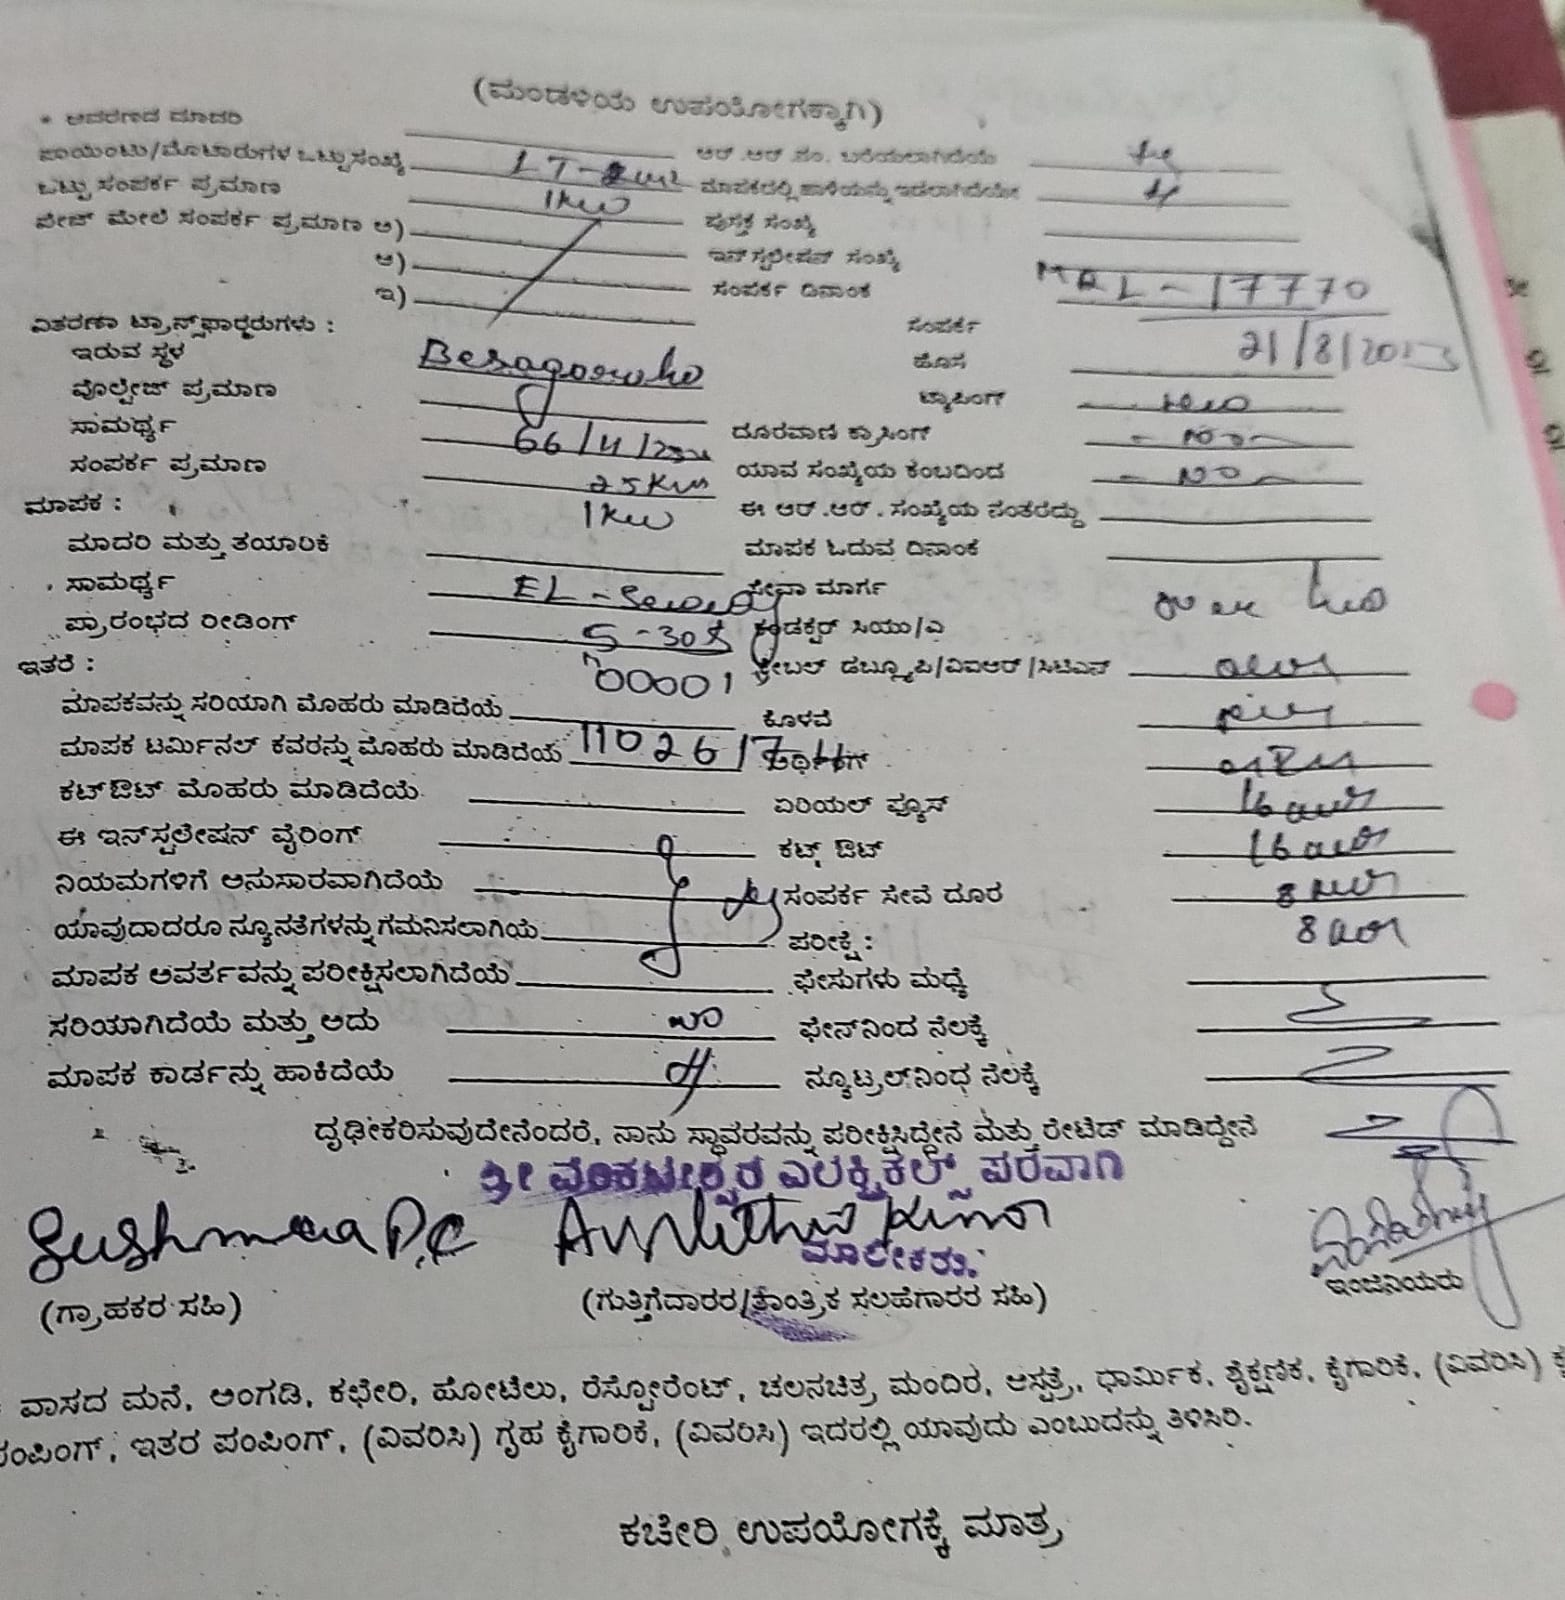 (ಮಂಡಳಿಯ ಉಪಯೋಗಕ್ಕಾಗಿ)
* ಆವರಣದ ಮಾದರಿ
ಪಾಯಿಂಟು/ಮೋಟಾರುಗಳ ಒಟ್ಟು ಸಂಖ್ಯೆ LT- ಆರ್.ಆರ್.ಸಂ. ಬರೆಯಲಾಗಿದೆಯೆ
ಒಟ್ಟು ಸಂಪರ್ಕ ಪ್ರಮಾಣ 1KW ಮಾಪಕದಲ್ಲಿ ಹಾಳೆಯನ್ನು ಇಡಲಾಗಿದೆಯೇ
ಪೇಜ್ ಮೇಲೆ ಸಂಪರ್ಕ ಪ್ರಮಾಣ ಅ) ಪುಸ್ತಕ ಸಂಖ್ಯೆ
ಆ) ಇನ್‌ಸ್ಟಲೇಷನ್ ಸಂಖ್ಯೆ
ಇ) ಸಂಪರ್ಕ ದಿನಾಂಕ MRL-17770
ವಿತರಣಾ ಟ್ರಾನ್ಸ್‌ಫಾರ್ಮರುಗಳು : ಸಂಪರ್ಕ 21/8/2013
ಇರುವ ಸ್ಥಳ ಹೊಸ
ವೊಲ್ಟೇಜ್ ಪ್ರಮಾಣ ಟ್ಯಾಪಿಂಗ್
ಸಾಮರ್ಥ್ಯ 66/11/ ದೂರವಾಣಿ ಕ್ರಾಸಿಂಗ್ - NO -
ಸಂಪರ್ಕ ಪ್ರಮಾಣ 25KVA ಯಾವ ಸಂಖ್ಯೆಯ ಕಂಬದಿಂದ - NO -
ಮಾಪಕ : 1KW ಈ ಆರ್.ಆರ್. ಸಂಖ್ಯೆಯ ನಂತರದ್ದು
ಮಾದರಿ ಮತ್ತು ತಯಾರಿಕೆ ಮಾಪಕ ಓದುವ ದಿನಾಂಕ
ಸಾಮರ್ಥ್ಯ EL- ಸೇವಾ ಮಾರ್ಗ
ಪ್ರಾರಂಭದ ರೀಡಿಂಗ್ 5-30 ಕಂಡಕ್ಟರ್ ಸಿಯು/ಎ
ಇತರೆ : 00001 ಕೇಬಲ್ ಡಬ್ಲ್ಯೂಪಿ/ವಿಐಆರ್/ಸಿಟಿಎಸ್
ಮಾಪಕವನ್ನು ಸರಿಯಾಗಿ ಮೊಹರು ಮಾಡಿದೆಯೆ ಕೊಳವೆ
ಮಾಪಕ ಟರ್ಮಿನಲ್ ಕವರನ್ನು ಮೊಹರು ಮಾಡಿದೆಯೆ 1102617 ಅರ್ಥಿಂಗ್
ಕಟ್‌ಔಟ್ ಮೊಹರು ಮಾಡಿದೆಯೆ ಏರಿಯಲ್ ಫ್ಯೂಸ್ 16
ಈ ಇನ್‌ಸ್ಟಲೇಷನ್ ವೈರಿಂಗ್ ಕಟ್ಟ್ ಔಟ್ 16
ನಿಯಮಗಳಿಗೆ ಅನುಸಾರವಾಗಿದೆಯೆ ಸಂಪರ್ಕ ಸೇವೆ ದೂರ 8
ಯಾವುದಾದರೂ ನ್ಯೂನತೆಗಳನ್ನು ಗಮನಿಸಲಾಗಿಯೆ ಪರೀಕ್ಷೆ: 8
ಮಾಪಕ ಆವರ್ತವನ್ನು ಪರೀಕ್ಷಿಸಲಾಗಿದೆಯೆ ಫೇಸುಗಳು ಮಧ್ಯೆ
ಸರಿಯಾಗಿದೆಯೆ ಮತ್ತು ಅದು ಫೇಸ್‌ನಿಂದ ನೆಲಕ್ಕೆ
ಮಾಪಕ ಕಾರ್ಡನ್ನು ಹಾಕಿದೆಯೆ ನ್ಯೂಟ್ರಲ್‌ನಿಂಧ ನೆಲಕ್ಕೆ
ದೃಢೀಕರಿಸುವುದೇನೆಂದರೆ, ನಾನು ಸ್ಥಾವರವನ್ನು ಪರೀಕ್ಷಿಸಿದ್ದೇನೆ ಮತ್ತು ರೇಟೆಡ್ ಮಾಡಿದ್ದೇನೆ
ಶ್ರೀ ವೆಂಕಟೇಶ್ವರ ಎಲಕ್ಟ್ರಿಕಲ್ಸ್ ಪರವಾಗಿ
Sushmeea P.C
ಮಾಲೀಕರು.
(ಗ್ರಾಹಕರ ಸಹಿ) (ಗುತ್ತಿಗೆದಾರರ/ತಾಂತ್ರಿಕ ಸಲಹೆಗಾರರ ಸಹಿ) ಇಂಜಿನಿಯರು
ವಾಸದ ಮನೆ, ಅಂಗಡಿ, ಕಛೇರಿ, ಹೋಟೆಲು, ರೆಸ್ಟೋರೆಂಟ್, ಚಲನಚಿತ್ರ ಮಂದಿರ, ಆಸ್ಪತ್ರೆ, ಧಾರ್ಮಿಕ, ಶೈಕ್ಷಣಿಕ, ಕೈಗಾರಿಕೆ, (ವಿವರಿಸಿ)
ಪಂಪಿಂಗ್, ಇತರ ಪಂಪಿಂಗ್, (ವಿವರಿಸಿ) ಗೃಹ ಕೈಗಾರಿಕೆ, (ವಿವರಿಸಿ) ಇದರಲ್ಲಿ ಯಾವುದು ಎಂಬುದನ್ನು ತಿಳಿಸಿರಿ.
ಕಚೇರಿ ಉಪಯೋಗಕ್ಕೆ ಮಾತ್ರ